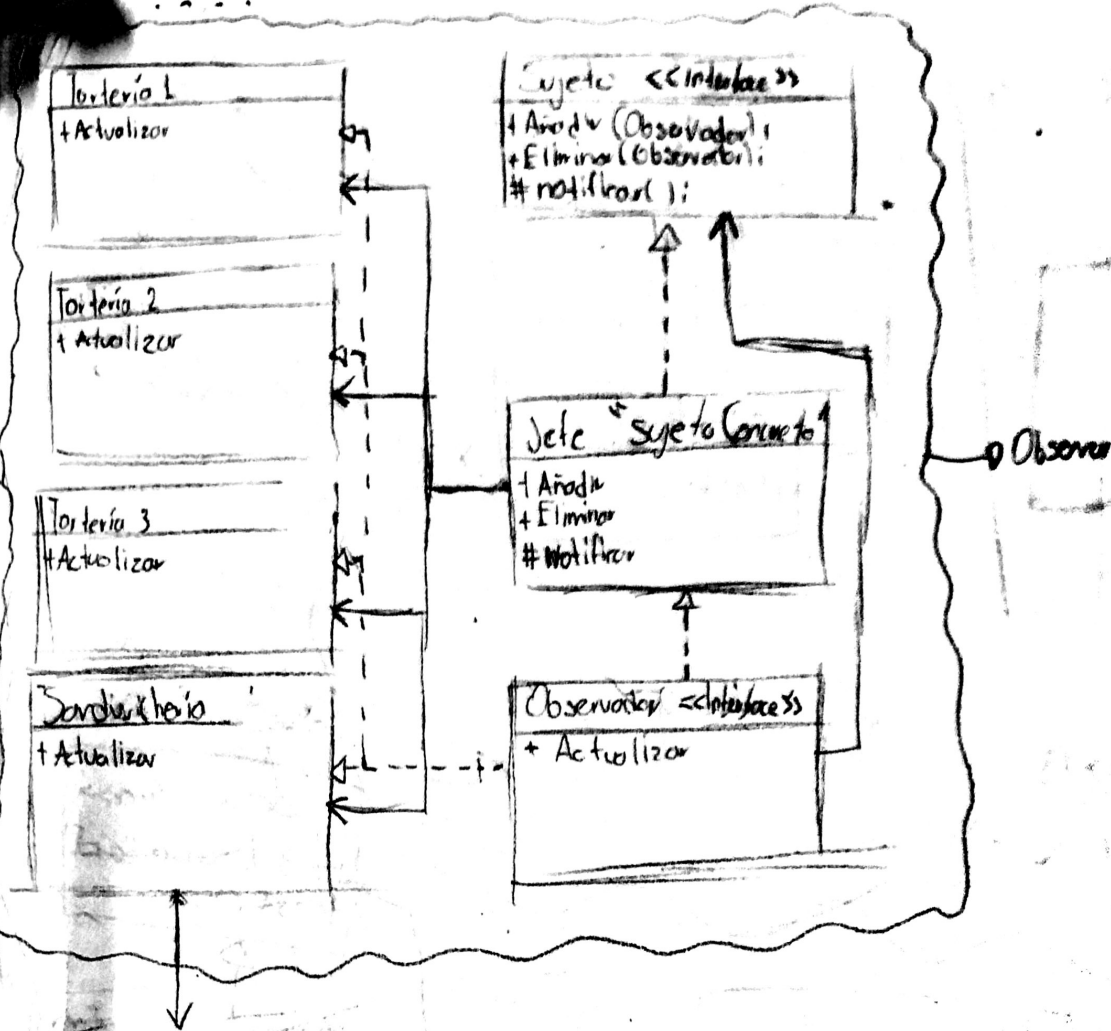 Tortería 1
+ Actualizar
Tortería 2
+ Actualizar
Tortería 3
+ Actualizar
Sandwicheria
+ Actualizar
Sujeto <<Interface>>
+ Añadir (Observador);
+ Eliminar (Observador);
# notificar( );
Jefe "Sujeto Concreto"
+ Añadir
+ Eliminar
# Notificar
Observador <<Interface>>
+ Actualizar
Observer